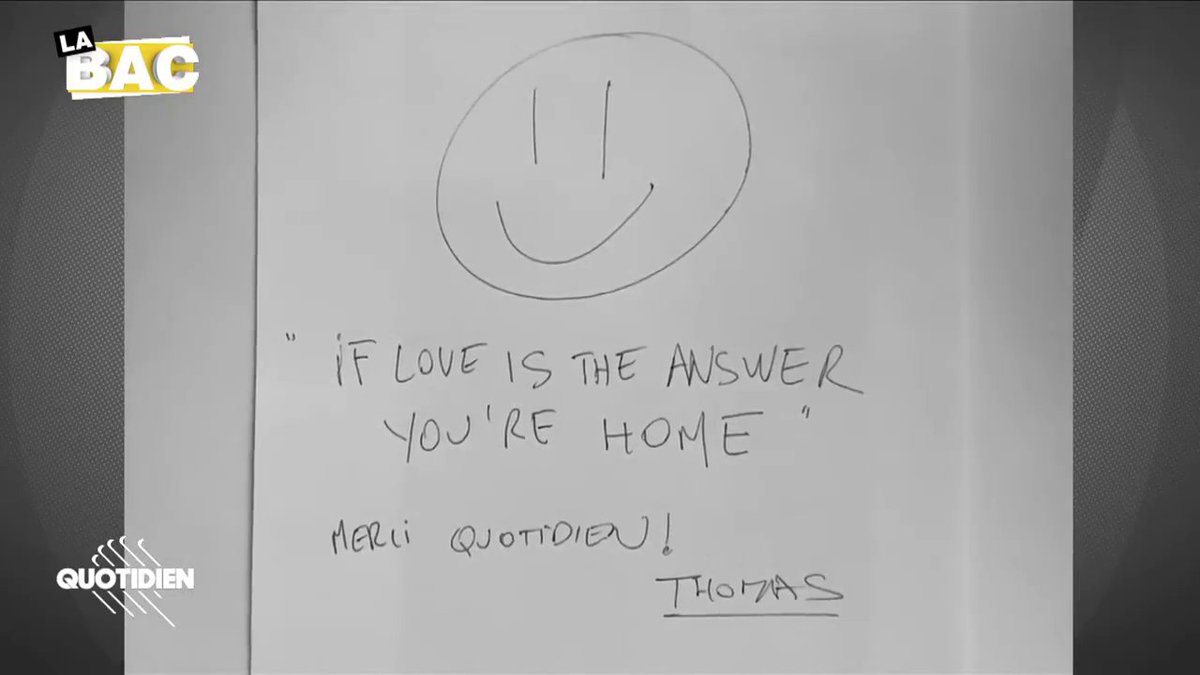 LA
BAC
" iF LOVE IS THE ANSWER
YOU'RE HOME "
MERCi QUOTiDIEN!
THOMAS
QUOTIDIEN